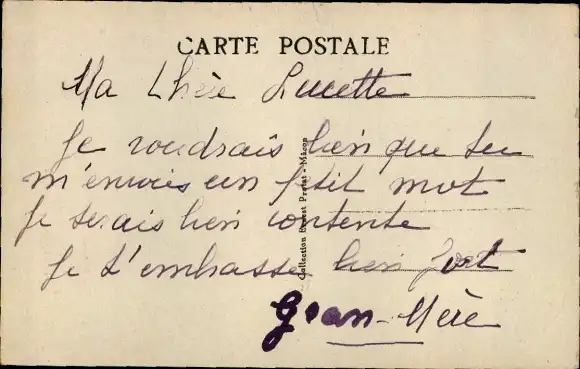 CARTE POSTALE
Ma Chère Lucette
Je voudrais bien que tu
m'envois un petit mot
Je serais bien contente
Je t'embrasse bien fort
Gran-Mère
Collection Ernest Protat - Macon